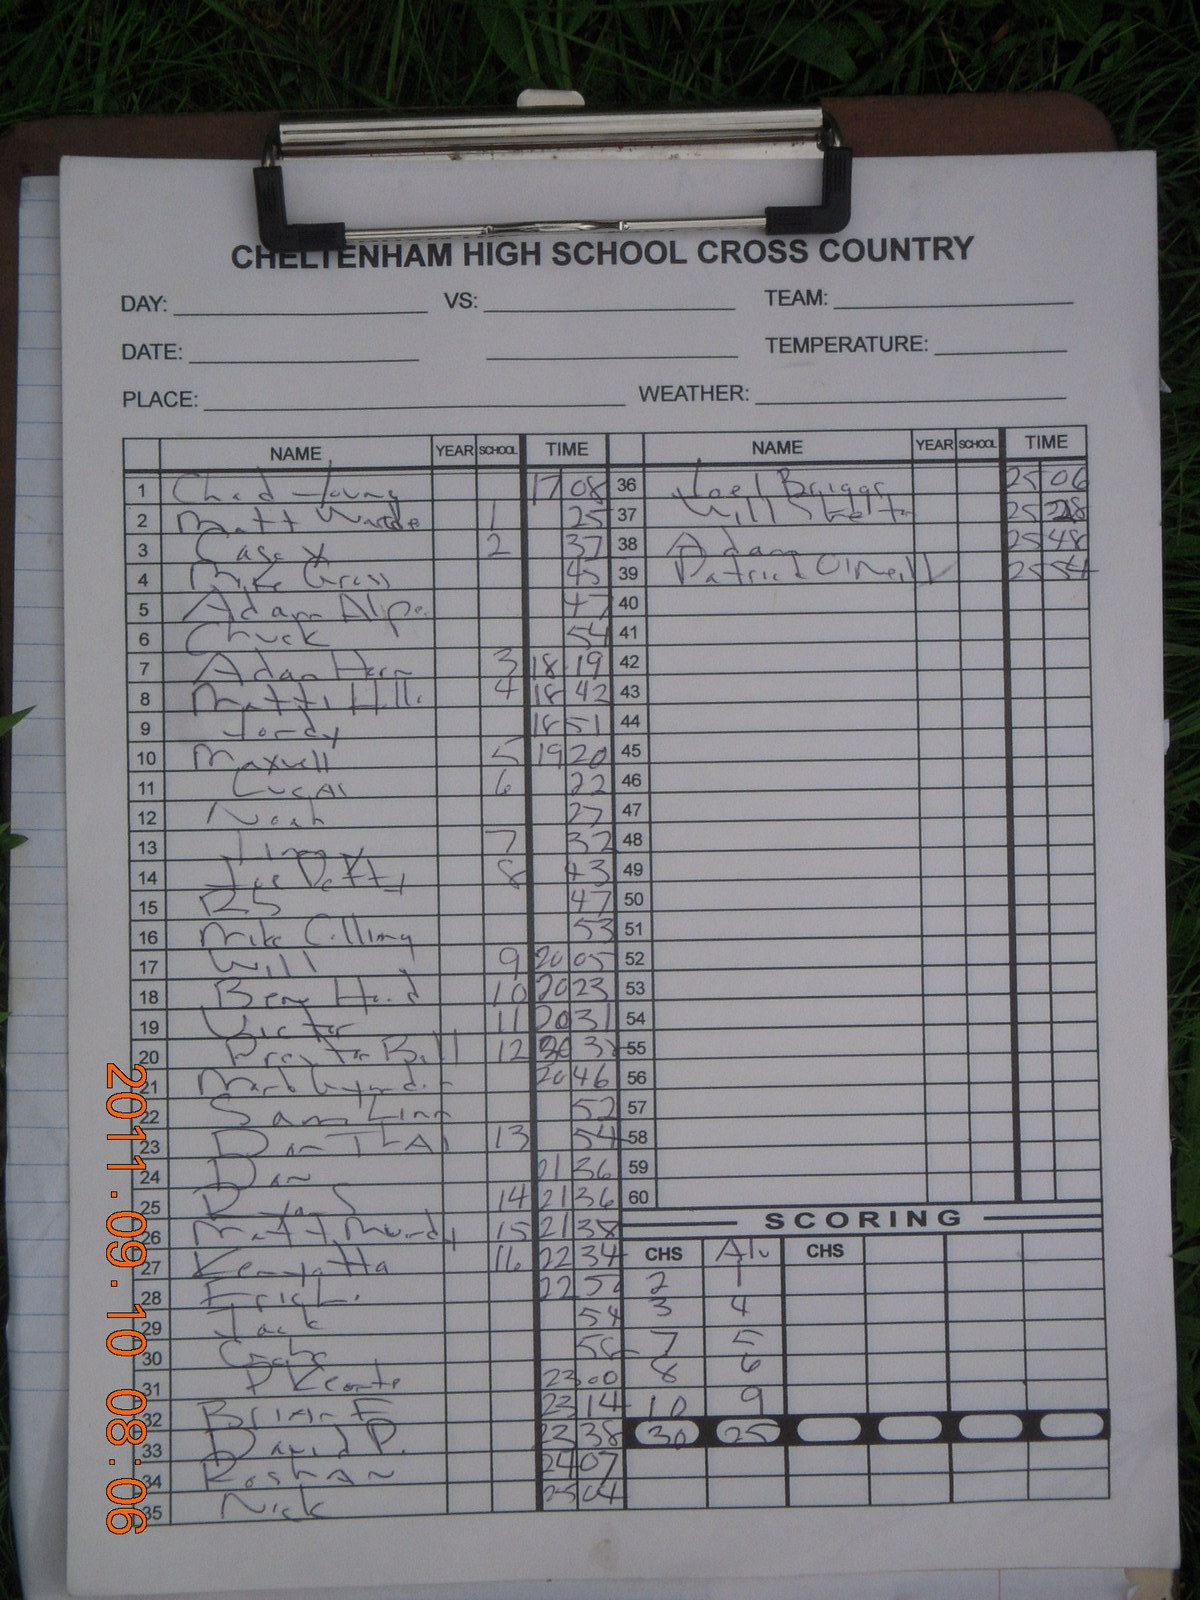 CHELTENHAM HIGH SCHOOL CROSS COUNTRY
DAY: VS: TEAM:
DATE: TEMPERATURE:
PLACE: WEATHER:
NAME YEAR SCHOOL TIME NAME YEAR SCHOOL TIME
1 Chad Young 17 08 36 Joel Briggs 25 06
2 Matt 1 25 37 Will 25 28
3 Casey 2 37 38 Adam 25 48
4 Mike Gross 45 39 Patrick O'Neill 25 54
5 Adam Alpe. 47 40
6 Chuck 54 41
7 Adam Horn 3 18 19 42
8 Matt Hill. 4 18 42 43
9 Jordy 18 51 44
10 Maxwell 5 19 20 45
11 Lucas 6 22 46
12 Noah 27 47
13 7 32 48
14 Joe Petty 8 43 49
15 47 50
16 Mike 53 51
17 Will 9 20 05 52
18 Ben 10 20 23 53
19 Victor 11 20 31 54
20 Ball 12 20 55
21 Mark 20 46 56
22 Sam Linn 52 57
23 Dan 13 54 58
24 Dan 21 36 59
25 14 21 36 60
26 Matt Mundy 15 21 38 SCORING
27 Kenyatta 16 22 34 CHS Alu CHS
28 Eric L. 22 2 1
29 Jack 54 3 4
30 Gabe 7 5
31 23 00 8 6
32 Brian F 23 14 10 9
33 David P. 23 38 30 25
34 Roshan 24 07
35 Nick 25 04
2011.09.10 08:06